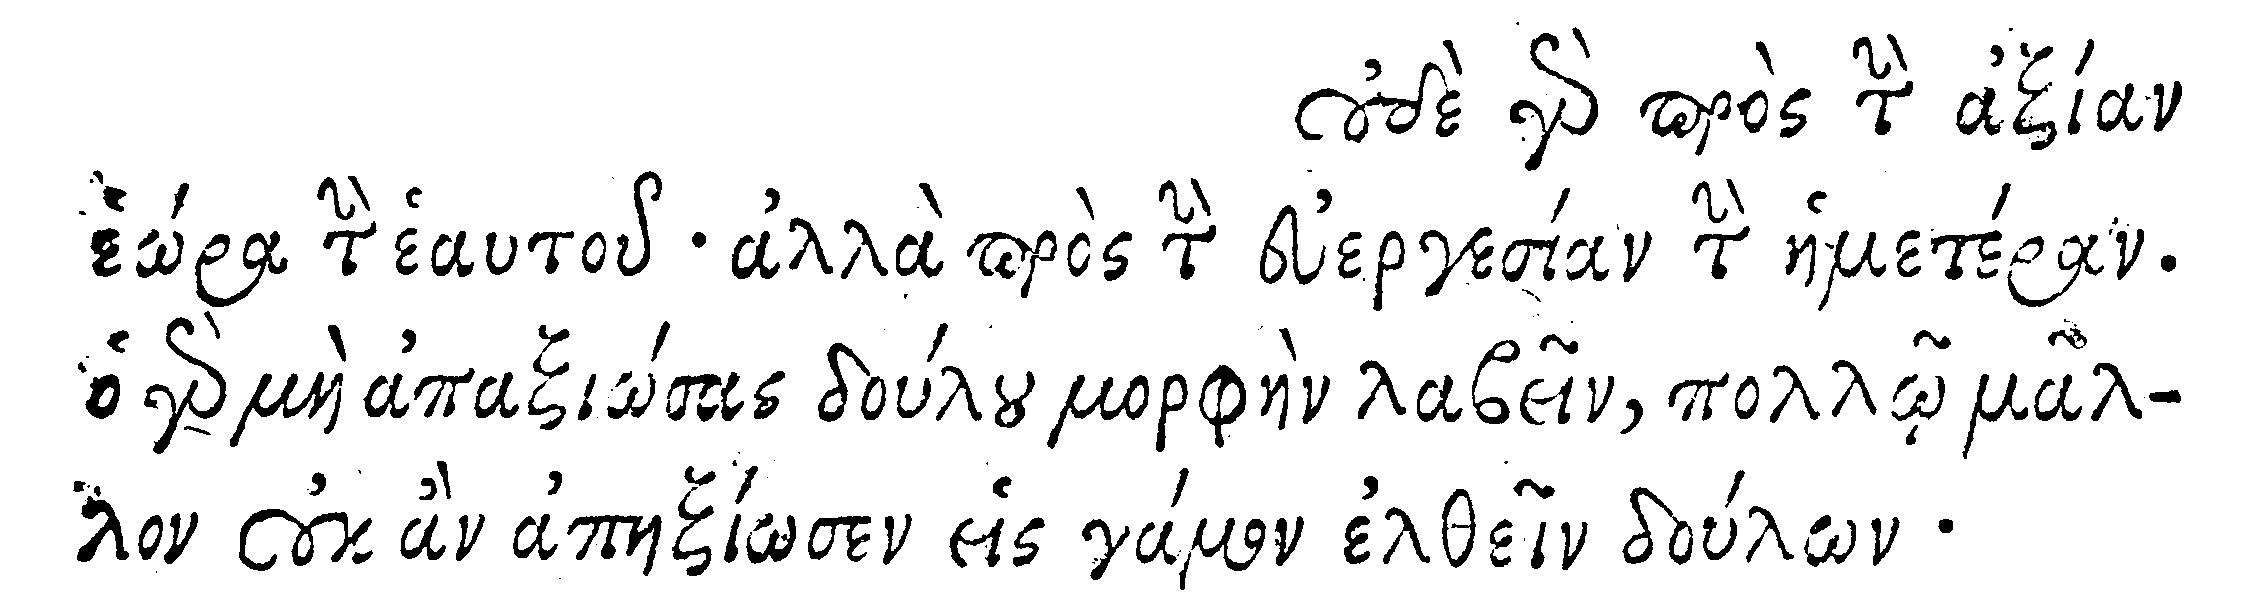 οὐδὲ γὰρ πρὸς τὴν ἀξίαν
ἑώρα τὴν ἑαυτοῦ · ἀλλὰ πρὸς τὴν εὐεργεσίαν τὴν ἡμετέραν.
ὁ γὰρ μὴ ἀπαξιώσας δούλου μορφὴν λαβεῖν, πολλῷ μᾶλ-
λον οὐκ ἂν ἀπηξίωσεν εἰς γάμον ἐλθεῖν δούλων ·